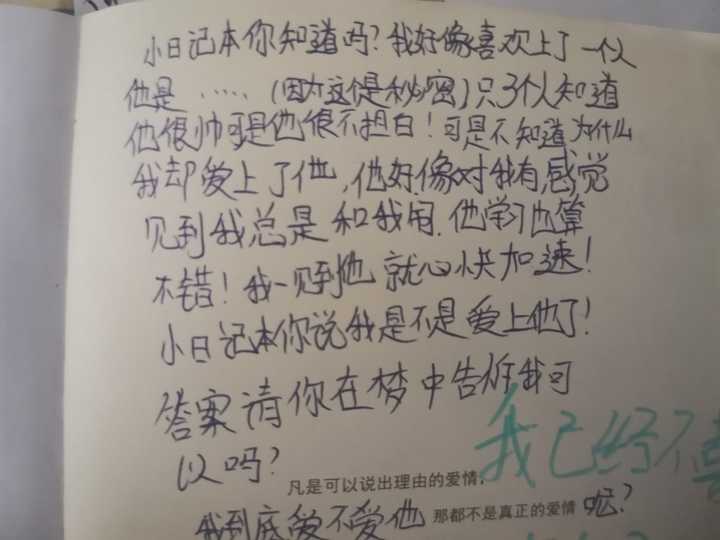 小日记本你知道吗?我好像喜欢上了一人
他是……(因为这是秘密)只3个人知道
他很帅可是他很不担白!可是不知道为什么
我却爱上了他,他好像对我有感觉
见到我总是和我闹.他学习也算
不错!我一见到他就心快加速!
小日记本你说我是不是爱上他了!
答案请你在梦中告诉我可
以吗?
我已经不喜
凡是可以说出理由的爱情,
我到底爱不爱他
那都不是真正的爱情
呢?